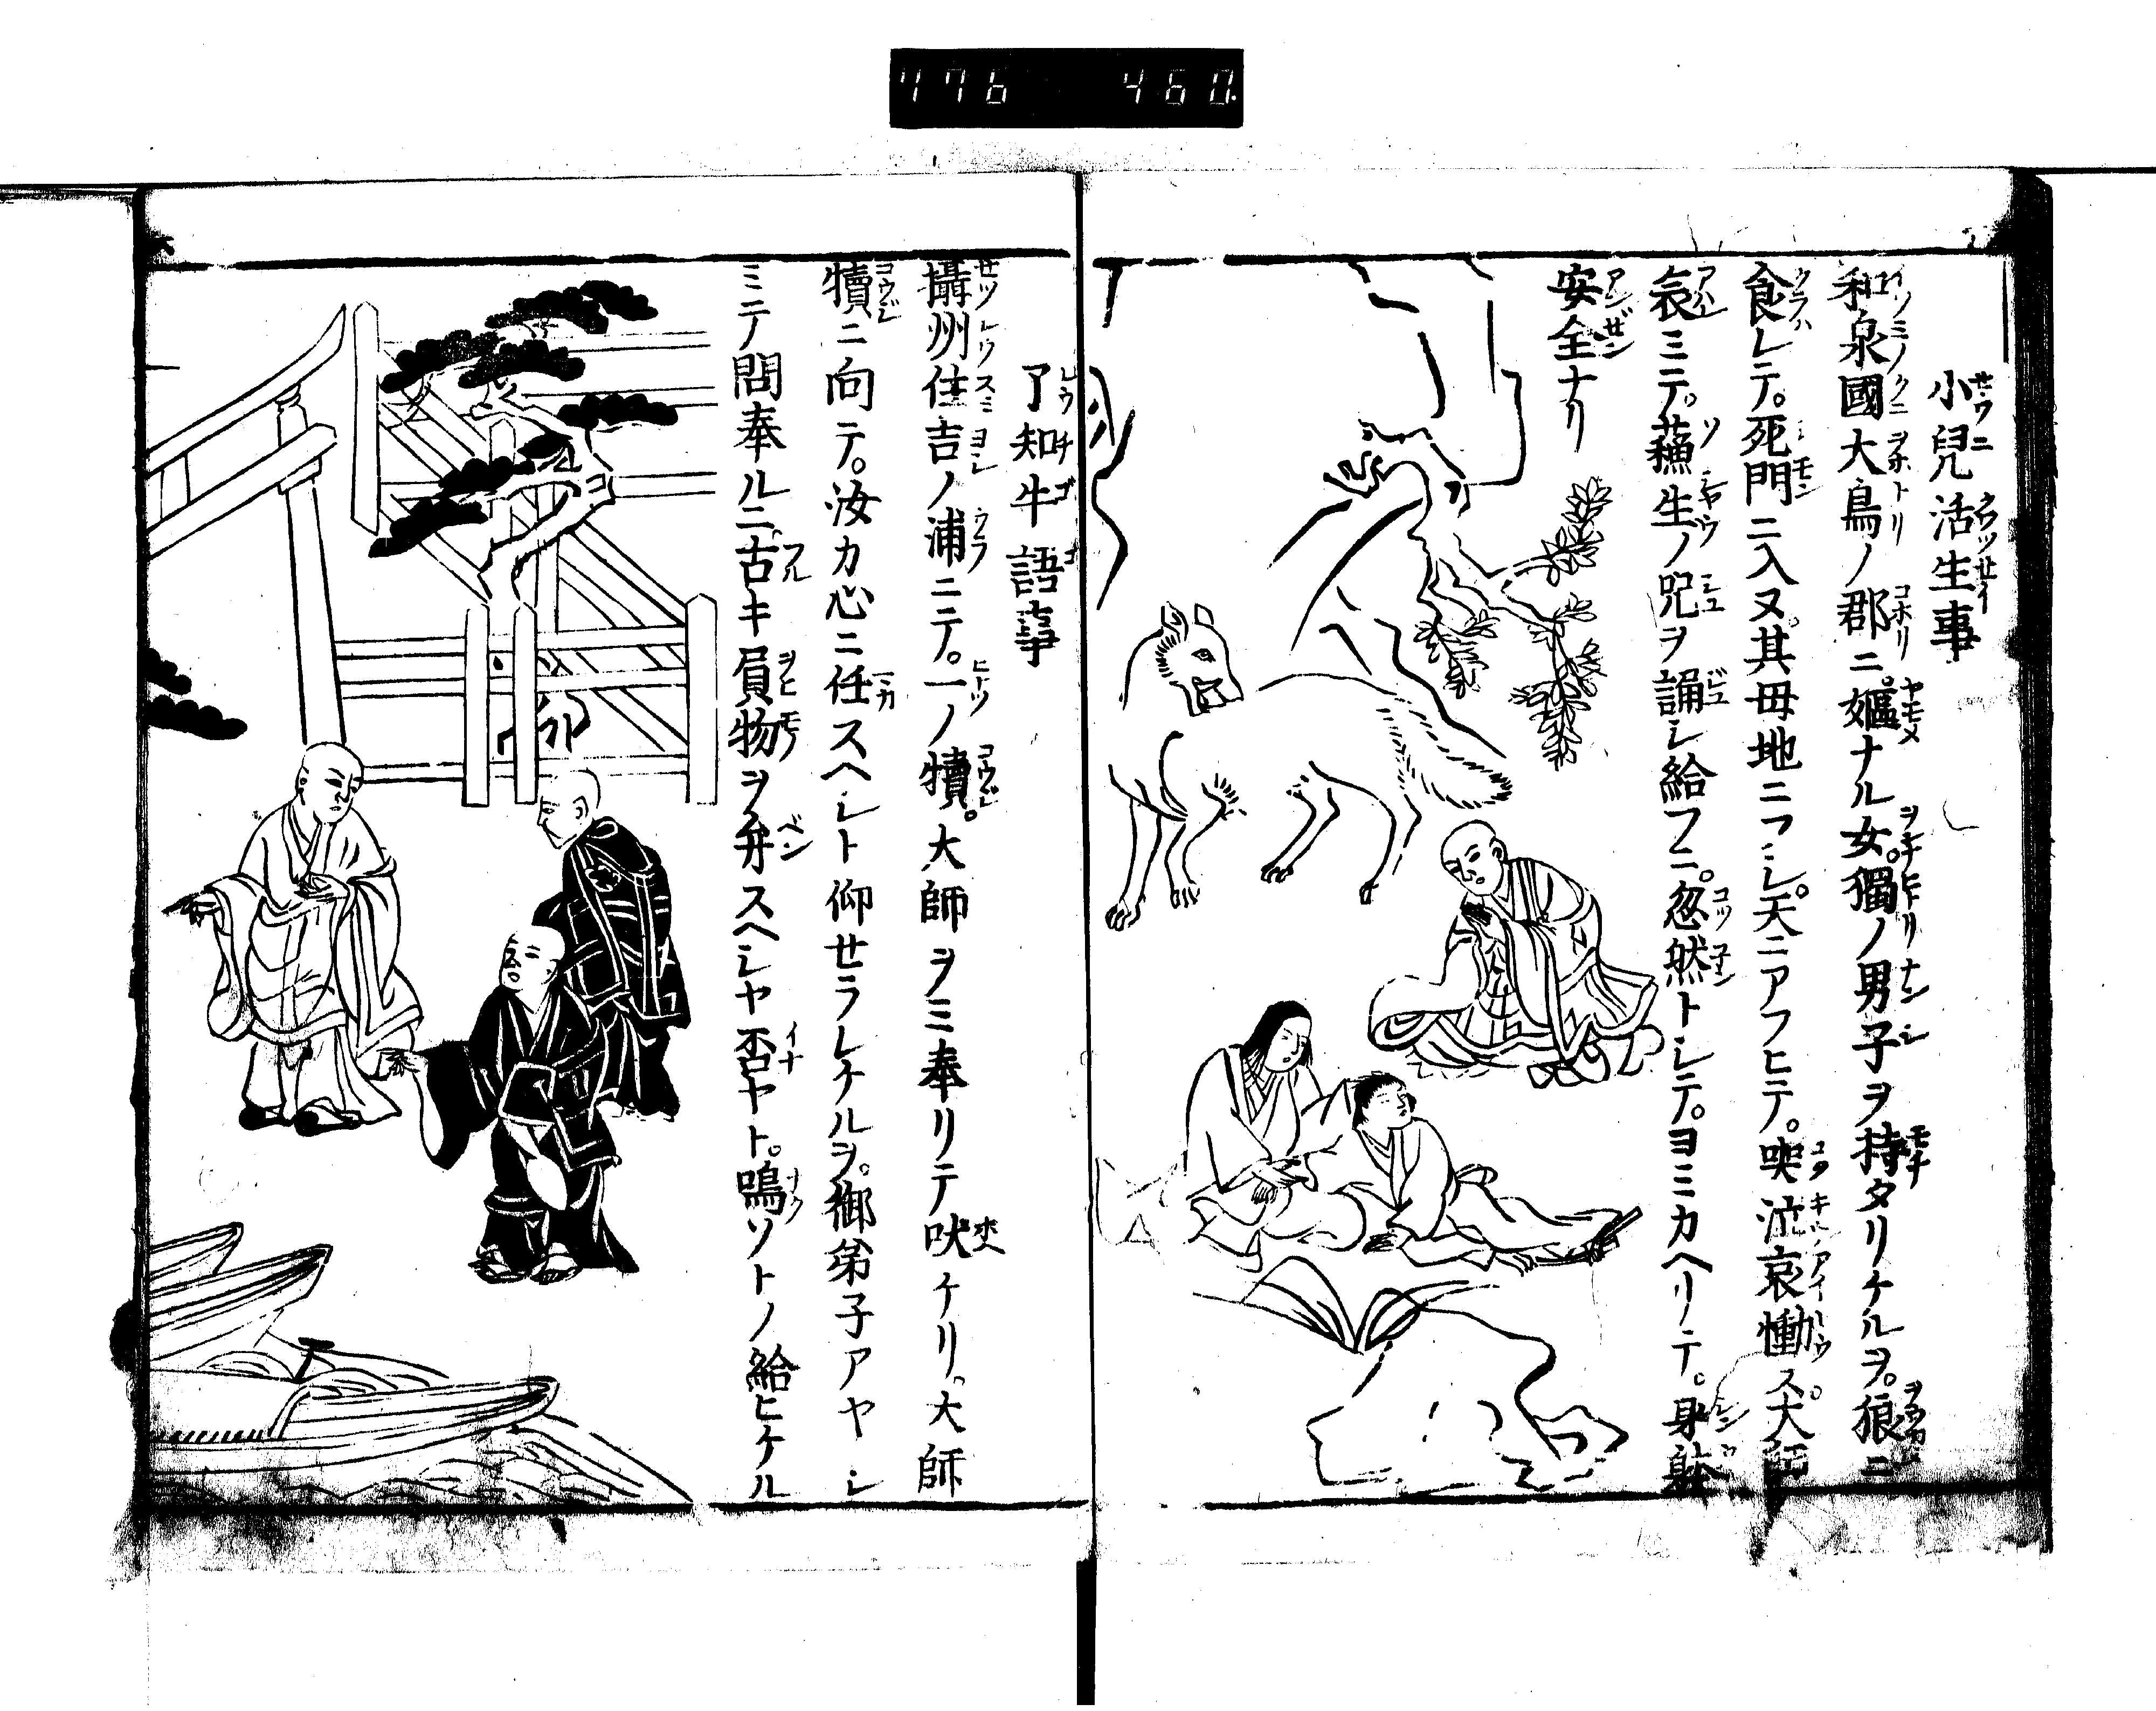 776 460.
小兒活生事
和泉國大鳥ノ郡ニ。嫗ナル女。獨ノ男子ヲ持タリケルヲ。狼ニ
食レテ。死門ニ入ヌ。其母地ニフシ。天ニアフヒテ。哭泣哀慟ス。大師
哀ミテ。蘓生ノ咒ヲ誦シ給フニ。忽然トシテ。ヨミカヘリテ。身躰
安全ナリ
了知牛語事
攝州住吉ノ浦ニテ。一ノ犢。大師ヲミ奉リテ吠ケリ。大師
犢ニ向テ。汝カ心ニ任スヘシト仰セラレケルヲ。御弟子アヤシ
ミテ問奉ルニ。古キ負物ヲ弁スヘシヤ否ヤト。鳴ソトノ給ヒケル